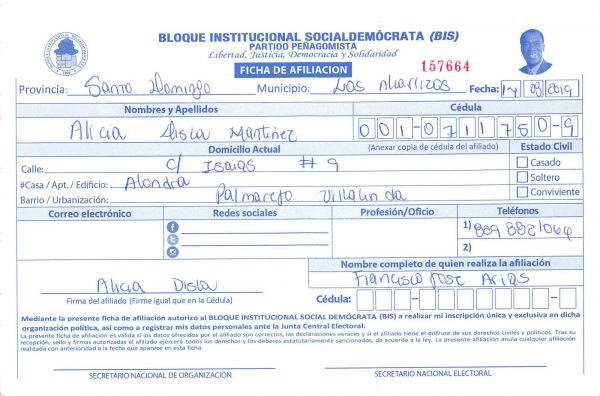 BLOQUE INSTITUCIONAL SOCIALDEMÓCRATA (BIS)
PARTIDO PEÑAGOMISTA
Libertad, Justicia, Democracia y Solidaridad
FICHA DE AFILIACION 157664
Provincia: Santo Domingo Municipio: Los Alcarrizos Fecha: 14 03 2019
Nombres y Apellidos Cédula
Alicia Disla Martinez 001-0711750-9
Domicilio Actual (Anexar copia de cédula del afiliado) Estado Civil
Calle: C/ Isaias # 9 Casado
#Casa / Apt. / Edificio: Alondra Soltero
Barrio / Urbanización: Palmarejo Villalinda Conviviente
Correo electrónico Redes sociales Profesión/Oficio Teléfonos
1) 809 8821064
2)
Nombre completo de quien realiza la afiliación
Alicia Disla Francisco Jose Arias
Firma del afiliado (Firme igual que en la Cédula) Cédula:
Mediante la presente ficha de afiliación autorizo al BLOQUE INSTITUCIONAL SOCIAL DEMÓCRATA (BIS) a realizar mi inscripción única y exclusiva en dicha
organización política, así como a registrar mis datos personales ante la Junta Central Electoral.
La presente ficha de afiliación es válida si los datos ofrecidos por el afiliado son correctos, las declaraciones veraces y si el afiliado tiene el disfrute de sus derechos civiles y políticos. Tras su
recepción, sello y firmas autorizadas el afiliado ejercerá todos los derechos y los deberes estatutariamente sancionados, de acuerdo a la ley. La presente afiliación anula cualquier afiliación
realizada con anterioridad a la fecha que aparece en esta ficha.
SECRETARIO NACIONAL DE ORGANIZACIÓN SECRETARIO NACIONAL ELECTORAL